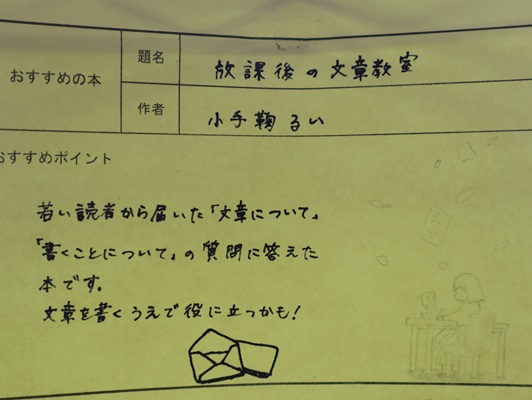 おすすめの本
題名
放課後の文章教室
作者
小手鞠るい
おすすめポイント
若い読者から届いた「文章について」
「書くことについて」の質問に答えた
本です。
文章を書くうえで役に立つかも!